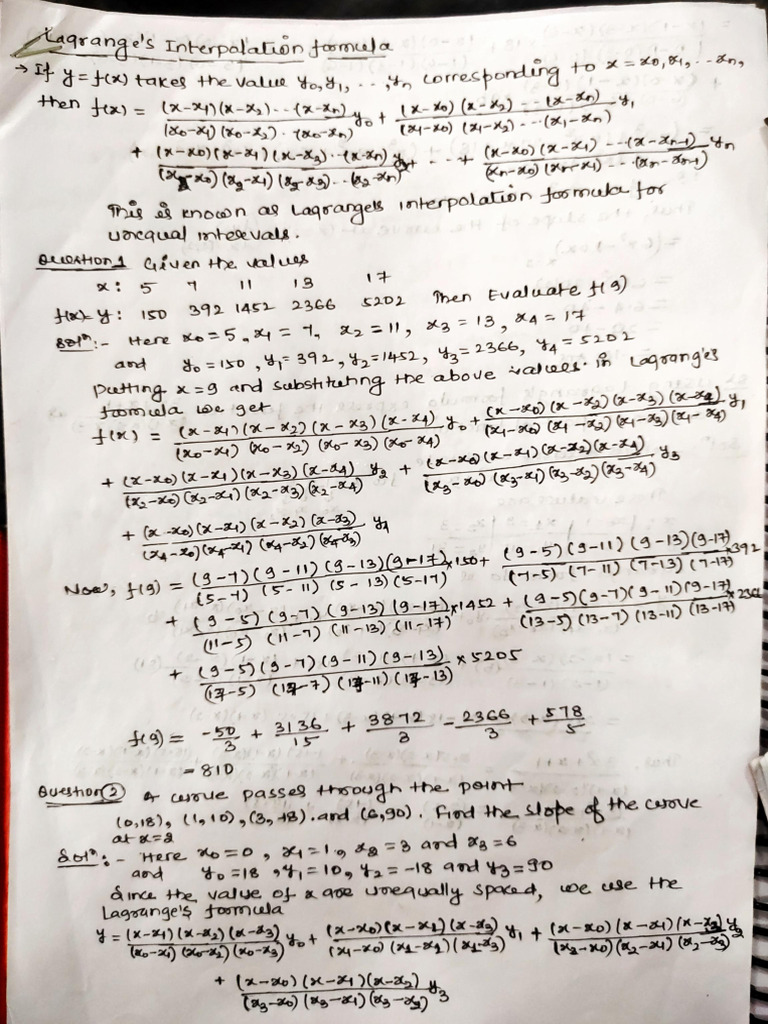 Lagrange's Interpolation formula
→ If y = f(x) takes the value y₀, y₁, ..., yₙ corresponding to x = x₀, x₁, ... xₙ,
then f(x) = (x-x₁)(x-x₂)...(x-xₙ)/(x₀-x₁)(x₀-x₂)...(x₀-xₙ) y₀ + (x-x₀)(x-x₂)...(x-xₙ)/(x₁-x₀)(x₁-x₂)...(x₁-xₙ) y₁
+ (x-x₀)(x-x₁)(x-x₃)...(x-xₙ)/(x₂-x₀)(x₂-x₁)(x₂-x₃)...(x₂-xₙ) y₂ + ... + (x-x₀)(x-x₁)...(x-xₙ₋₁)/(xₙ-x₀)(xₙ-x₁)...(xₙ-xₙ₋₁) yₙ
This is known as Lagrange's interpolation formula for
unequal intervals.
Question 1 Given the values
x: 5 7 11 13 17
f(x)=y: 150 392 1452 2366 5202 Then Evaluate f(9)
Solⁿ:- Here x₀=5, x₁=7, x₂=11, x₃=13, x₄=17
and y₀=150, y₁=392, y₂=1452, y₃=2366, y₄=5202
putting x=9 and substituting the above values in Lagrange's
formula we get
f(x) = (x-x₁)(x-x₂)(x-x₃)(x-x₄)/(x₀-x₁)(x₀-x₂)(x₀-x₃)(x₀-x₄) y₀ + (x-x₀)(x-x₂)(x-x₃)(x-x₄)/(x₁-x₀)(x₁-x₂)(x₁-x₃)(x₁-x₄) y₁
+ (x-x₀)(x-x₁)(x-x₃)(x-x₄)/(x₂-x₀)(x₂-x₁)(x₂-x₃)(x₂-x₄) y₂ + (x-x₀)(x-x₁)(x-x₂)(x-x₄)/(x₃-x₀)(x₃-x₁)(x₃-x₂)(x₃-x₄) y₃
+ (x-x₀)(x-x₁)(x-x₂)(x-x₃)/(x₄-x₀)(x₄-x₁)(x₄-x₂)(x₄-x₃) y₄
Now, f(9) = (9-7)(9-11)(9-13)(9-17)/(5-7)(5-11)(5-13)(5-17) ×150 + (9-5)(9-11)(9-13)(9-17)/(7-5)(7-11)(7-13)(7-17) ×392
+ (9-5)(9-7)(9-13)(9-17)/(11-5)(11-7)(11-13)(11-17) ×1452 + (9-5)(9-7)(9-11)(9-17)/(13-5)(13-7)(13-11)(13-17) ×2366
+ (9-5)(9-7)(9-11)(9-13)/(17-5)(17-7)(17-11)(17-13) ×5205
f(9) = -50/3 + 3136/15 + 3872/3 - 2366/3 + 578/5
= 810
Question ② A curve passes through the point
(0,18), (1,10), (3,-18) and (6,90). Find the slope of the curve
at x=2
Solⁿ:- Here x₀=0, x₁=1, x₂=3 and x₃=6
and y₀=18, y₁=10, y₂=-18 and y₃=90
Since the value of x are unequally spaced, we use the
Lagrange's formula
y = (x-x₁)(x-x₂)(x-x₃)/(x₀-x₁)(x₀-x₂)(x₀-x₃) y₀ + (x-x₀)(x-x₂)(x-x₃)/(x₁-x₀)(x₁-x₂)(x₁-x₃) y₁ + (x-x₀)(x-x₁)(x-x₃)/(x₂-x₀)(x₂-x₁)(x₂-x₃) y₂
+ (x-x₀)(x-x₁)(x-x₂)/(x₃-x₀)(x₃-x₁)(x₃-x₂) y₃